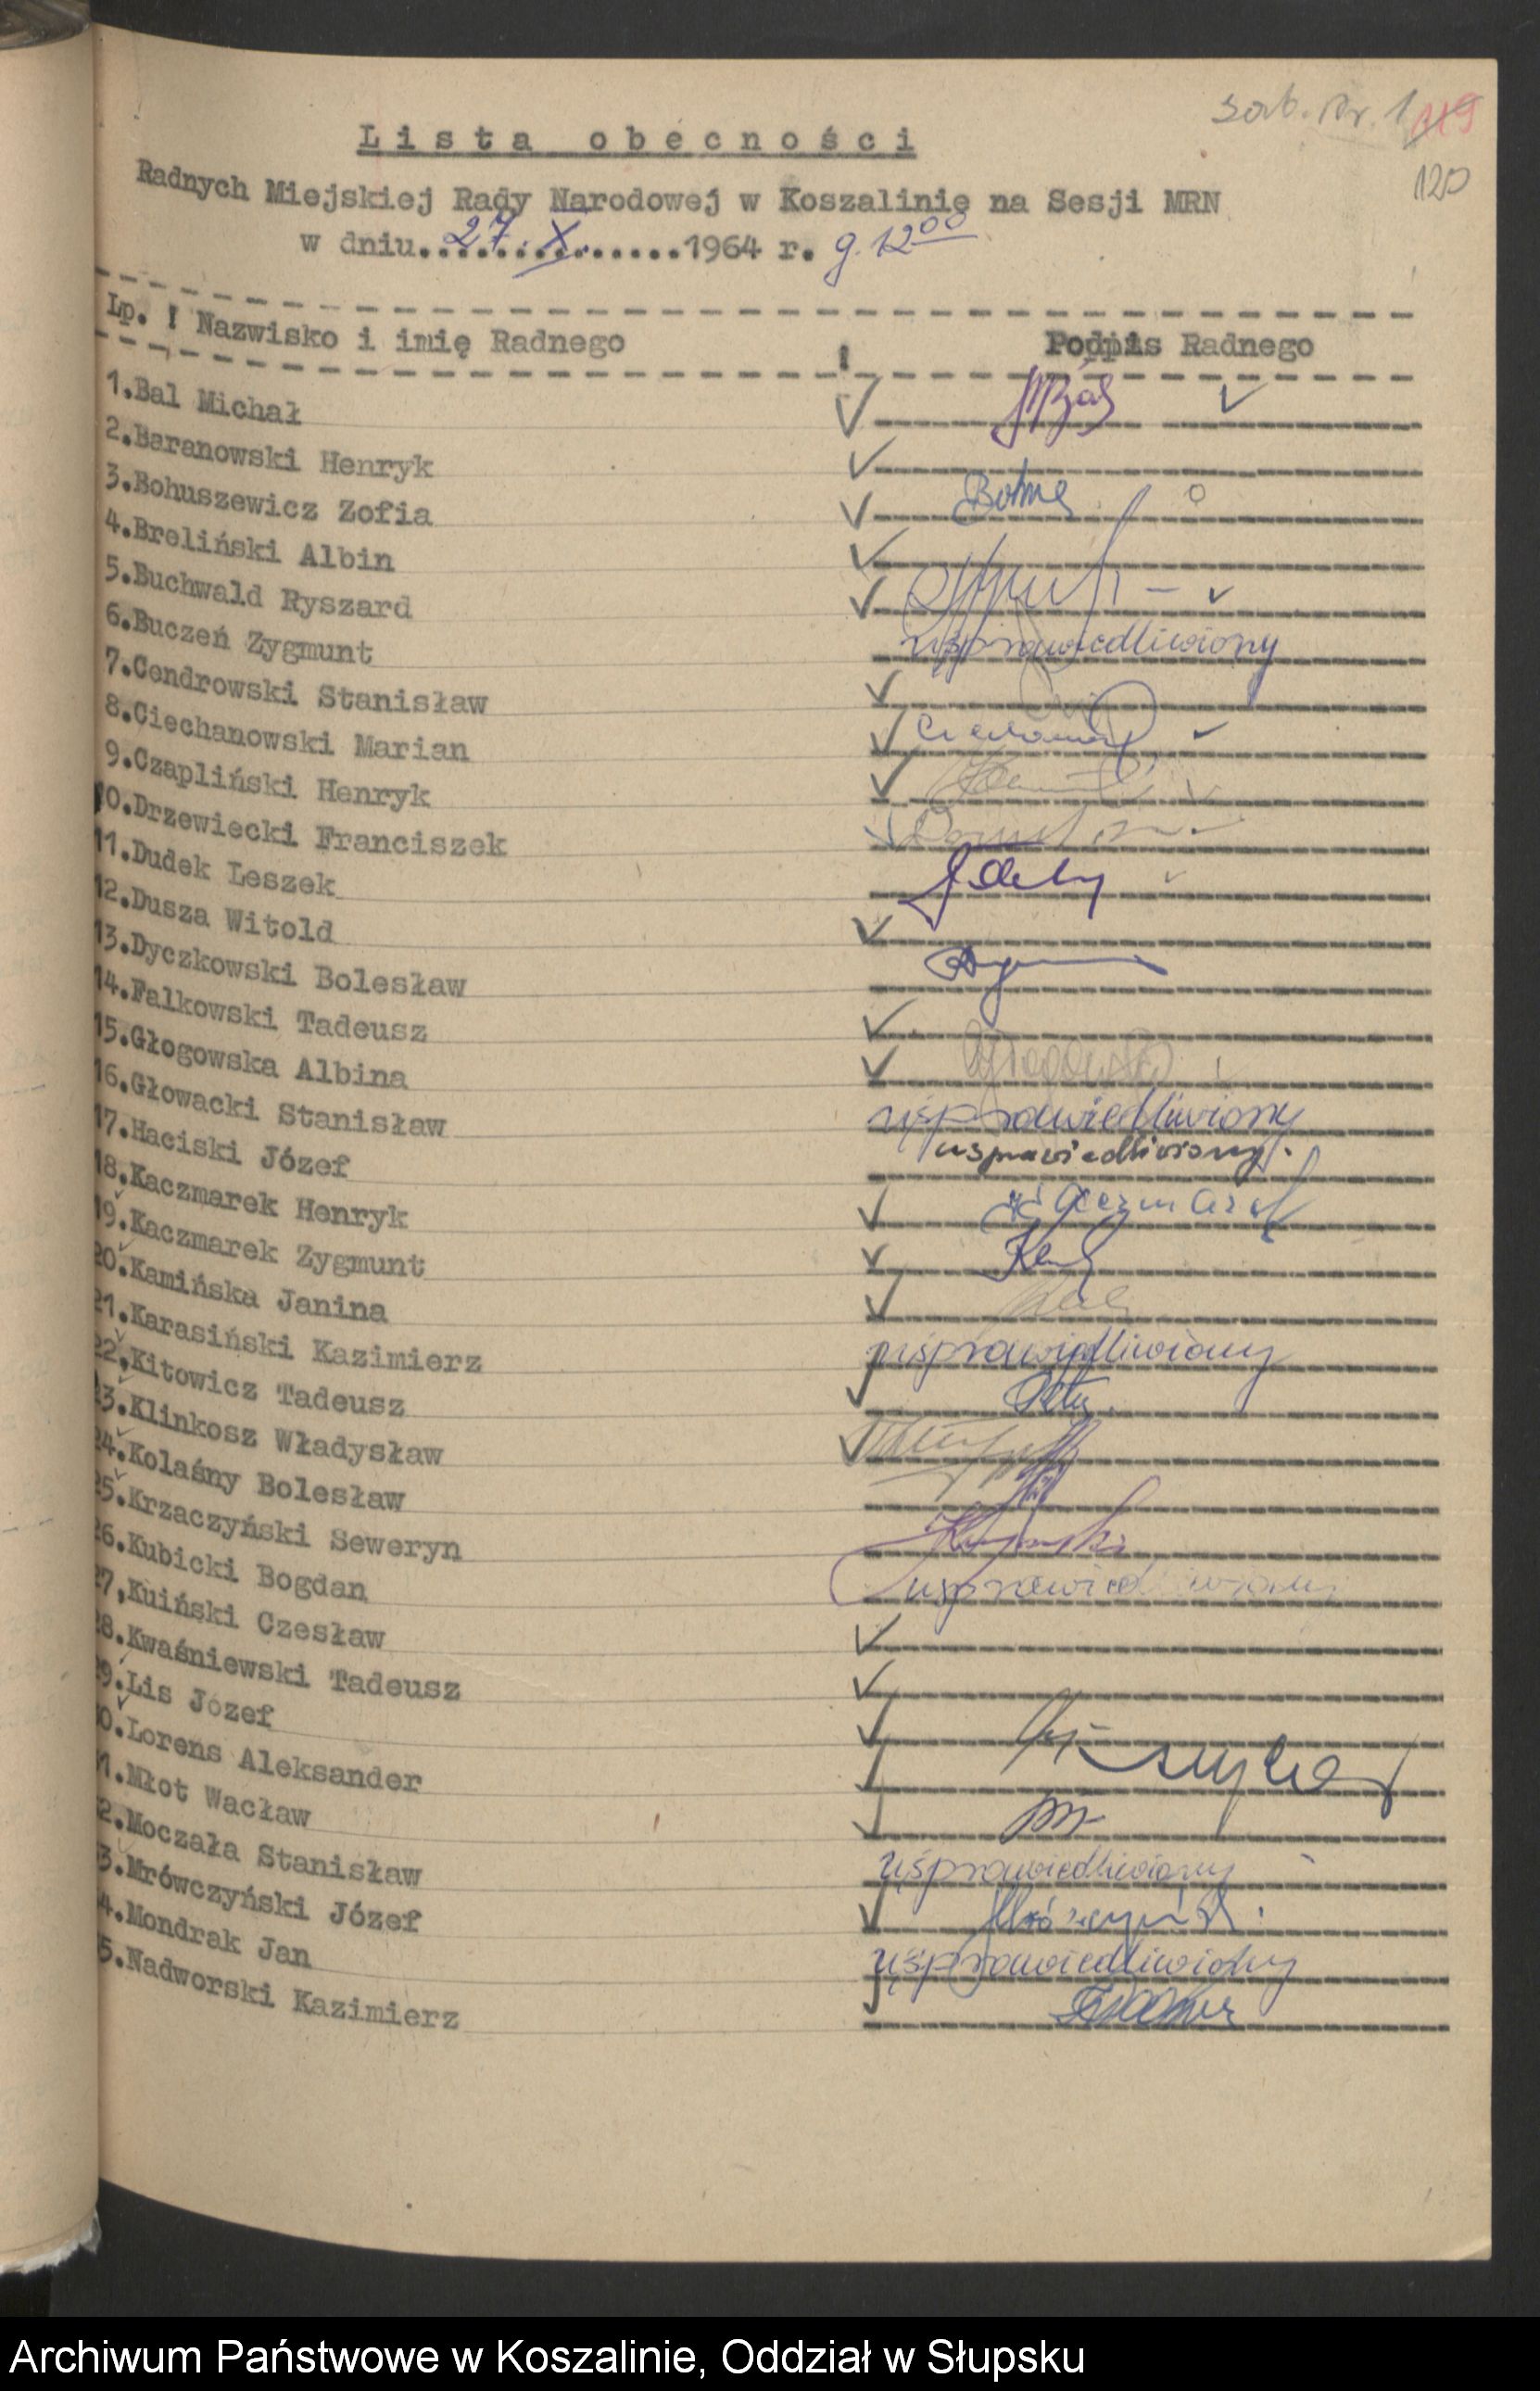 zał. Nr. 1 119
120
Lista obecności
Radnych Miejskiej Rady Narodowej w Koszalinie na Sesji MRN
w dniu..27.X...............1964 r. g. 12⁰⁰
Lp. ! Nazwisko i imię Radnego ! Podpis Radnego
1.Bal Michał MBal
2.Baranowski Henryk
3.Bohuszewicz Zofia
4.Breliński Albin
5.Buchwald Ryszard
6.Buczeń Zygmunt usprawiedliwiony
7.Cendrowski Stanisław
8.Ciechanowski Marian
9.Czapliński Henryk
10.Drzewiecki Franciszek
11.Dudek Leszek
12.Dusza Witold
13.Dyczkowski Bolesław
14.Falkowski Tadeusz
15.Głogowska Albina
16.Głowacki Stanisław usprawiedliwiony
17.Haciski Józef usprawiedliwiony.
18.Kaczmarek Henryk
19.Kaczmarek Zygmunt
20.Kamińska Janina
21.Karasiński Kazimierz usprawiedliwiony
22,Kitowicz Tadeusz
23.Klinkosz Władysław
24.Kolaśny Bolesław
25.Krzaczyński Seweryn
26.Kubicki Bogdan usprawiedliwiony
27,Kuiński Czesław
28.Kwaśniewski Tadeusz
29.Lis Józef
30.Lorens Aleksander
31.Młot Wacław
32.Moczała Stanisław usprawiedliwiony
33.Mrówczyński Józef
34.Mondrak Jan usprawiedliwiony
35.Nadworski Kazimierz
Archiwum Państwowe w Koszalinie, Oddział w Słupsku